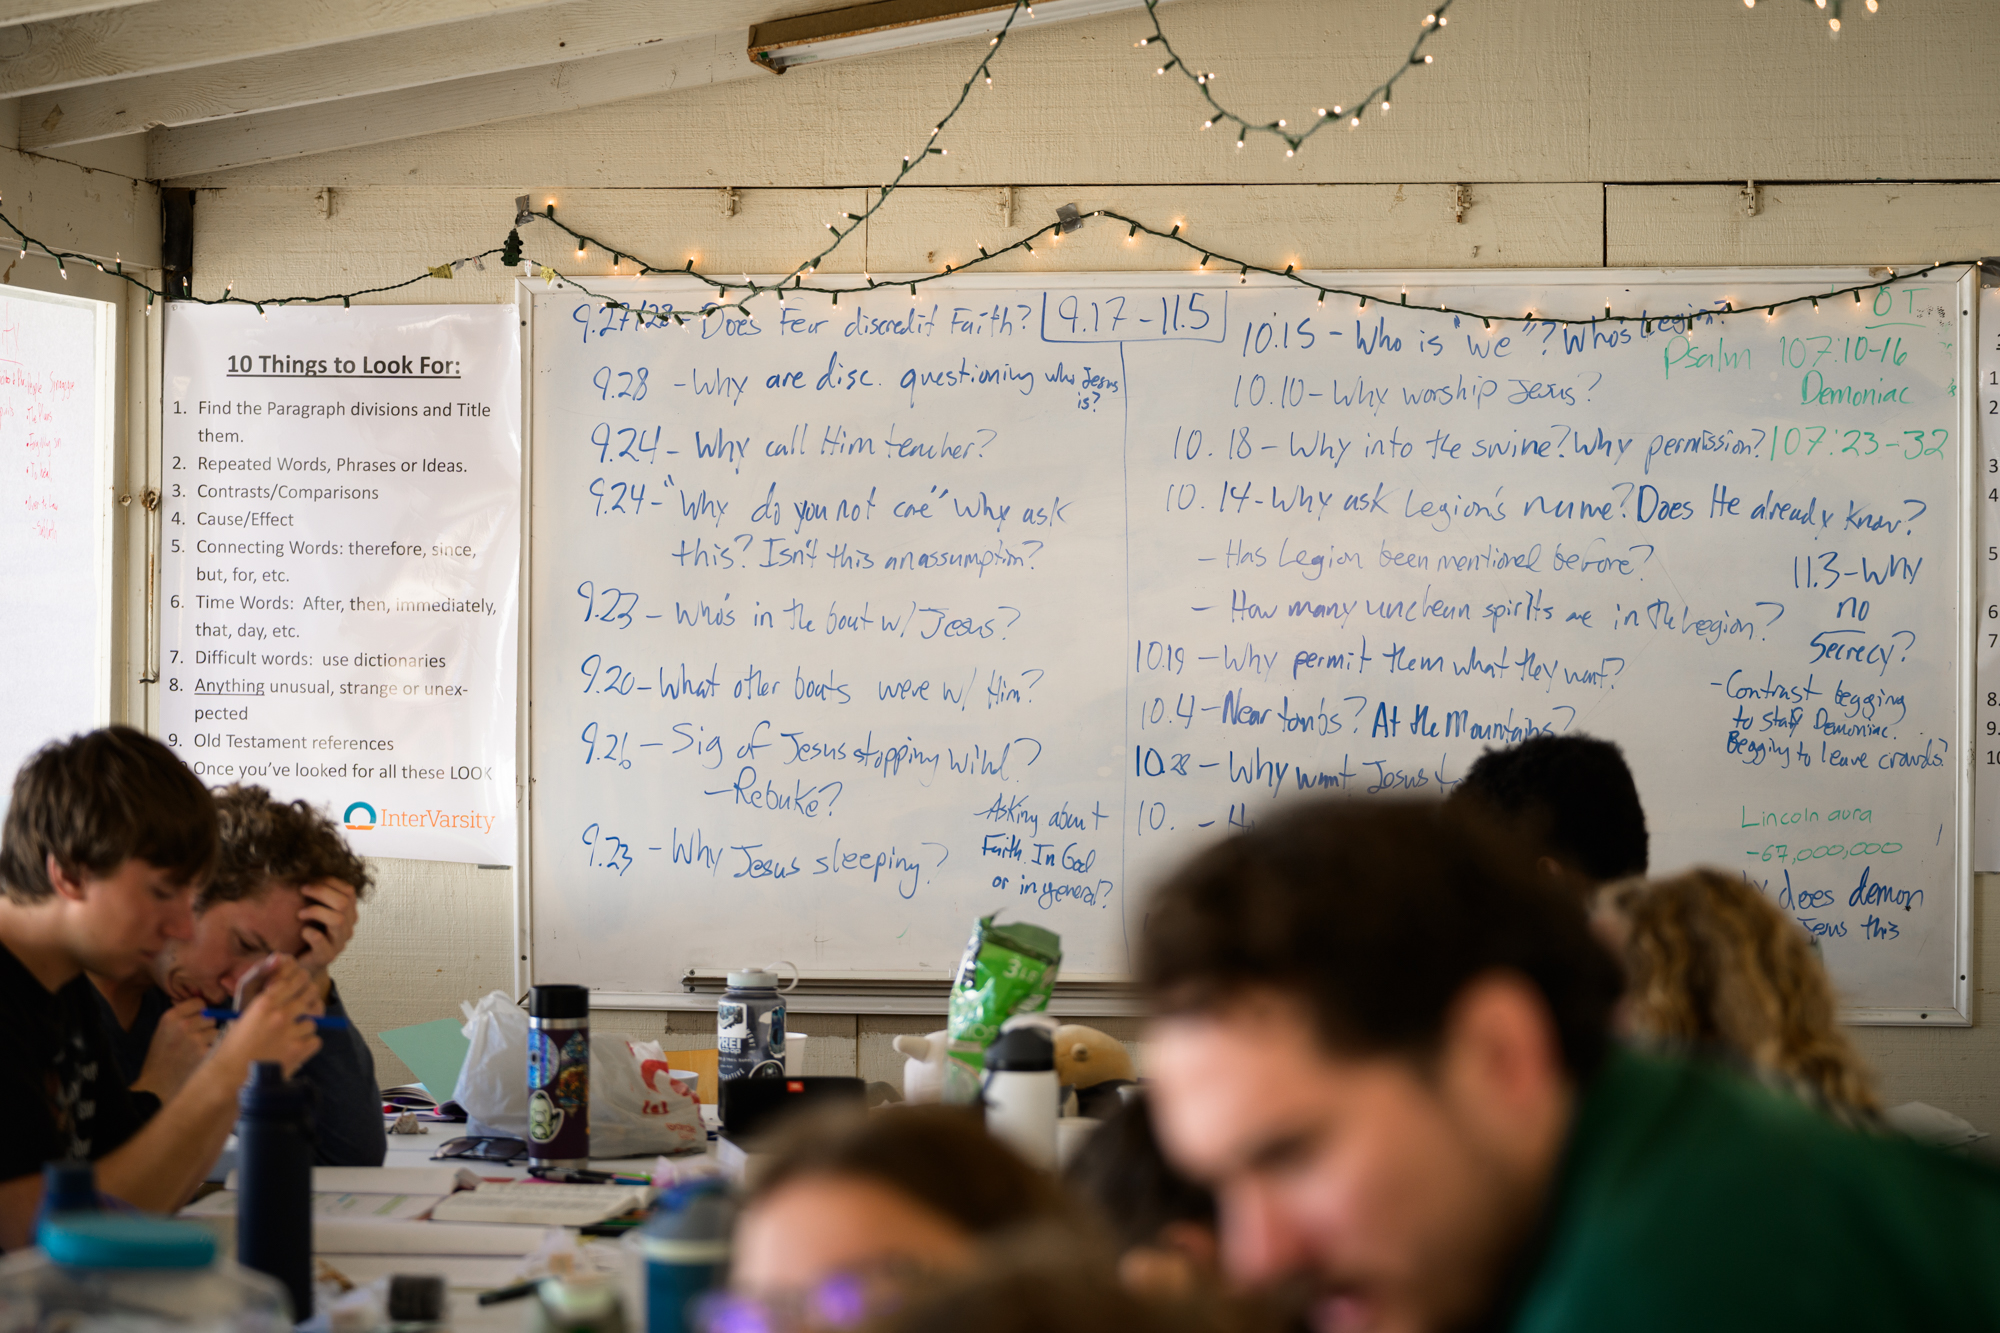 10 Things to Look For:
1. Find the Paragraph divisions and Title
them.
2. Repeated Words, Phrases or Ideas.
3. Contrasts/Comparisons
4. Cause/Effect
5. Connecting Words: therefore, since,
but, for, etc.
6. Time Words: After, then, immediately,
that, day, etc.
7. Difficult words: use dictionaries
8. Anything unusual, strange or unex-
pected
9. Old Testament references
Once you've looked for all these LOOK
InterVarsity
9.27/28 - Does Fear discredit Faith?
9.17 - 11.5
9.28 - Why are disc. questioning who Jesus
is?
9.24 - Why call Him teacher?
9.24 - "Why do you not care" Why ask
this? Isn't this an assumption?
9.23 - Who's in the boat w/ Jesus?
9.20 - What other boats were w/ Him?
9.26 - Sig of Jesus stopping wind?
- Rebuke?
9.23 - Why Jesus sleeping?
- Asking about
Faith. In God
or in general?
10.15 - Who is "we"? Who's Legion?
10.10 - Why worship Jesus?
10.18 - Why into the swine? Why permission?
10.14 - Why ask Legion's name? Does He already know?
- Has Legion been mentioned before?
- How many unclean spirits are in the Legion?
10.19 - Why permit them what they want?
10.4 - Near tombs? At the Mountains?
10.28 - Why want Jesus
10. -
OT
Psalm 107:10-16
Demoniac
107:23-32
11.3 - Why
no
Secrecy?
- Contrast begging
to stay Demoniac.
Begging to leave crowds?
Lincoln aura
-67,000,000
does demon
Jesus this